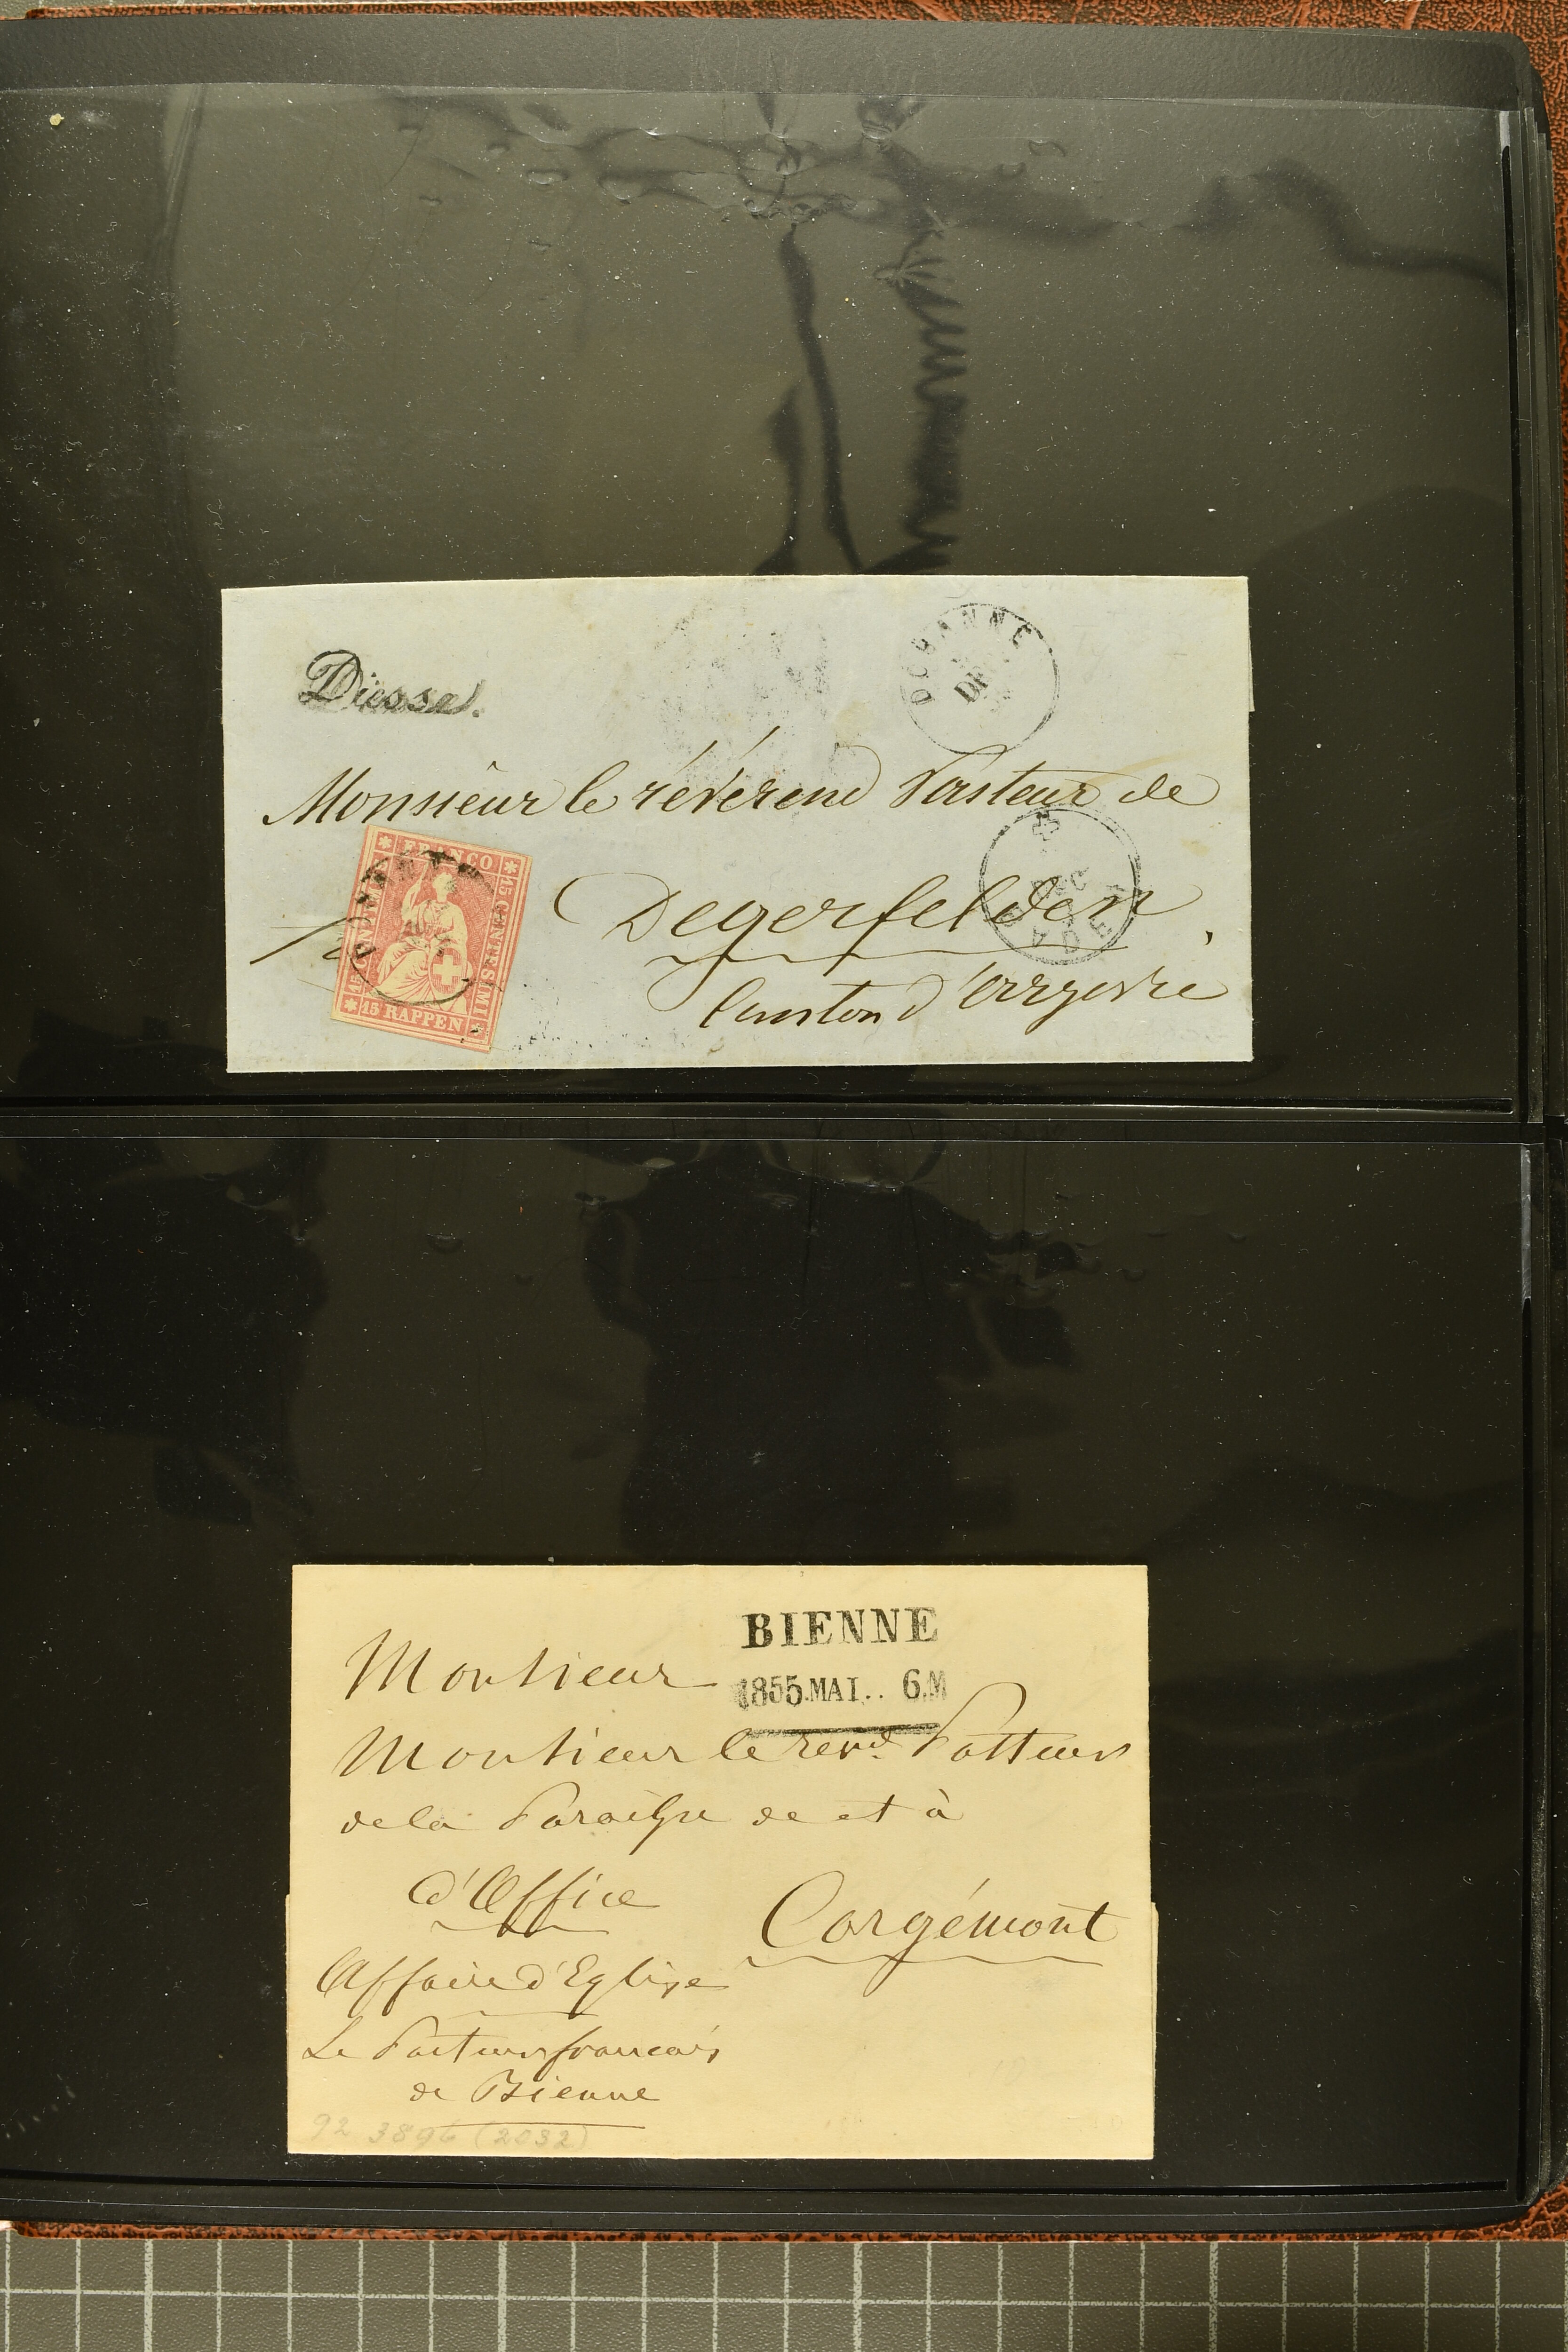 Diesse.
DOUANNE
DEC
Monsieur le révérend Pasteur de
Degerfelden,
Canton d'Argovie
FRANCO
15 CENTESIMI
15 RAPPEN
DOUANNE
BADEN
DEC
BIENNE
1855. MAI.. 6.M
Monsieur
Monsieur le revd. Pasteur
de la Paroisse de et à
d'Office
Corgémont
Affaire d'Eglise
Le Pasteur français
de Bienne
92 3896 (2032)